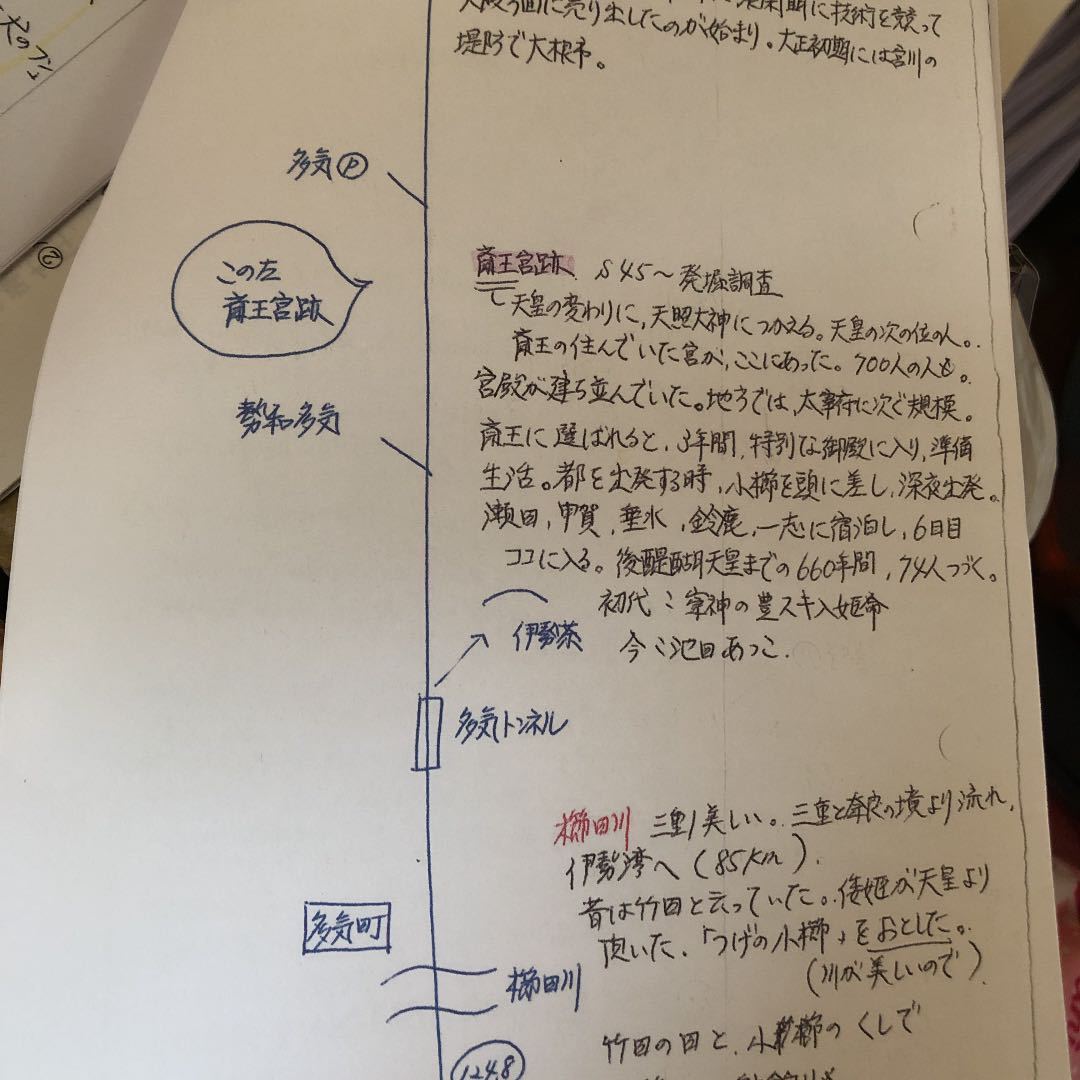 犬の
②
大阪方面に売り出したのが始まり。大正初期には宮川の
堤防で大根市。
多気Ⓟ
この左
斎王宮跡
勢和多気
斎王宮跡 S45～発掘調査
天皇の変わりに、天照大神につかえる。天皇の次の位の人。
斎王の住んでいた宮が、ここにあった。700人の人も。
宮殿が建ち並んでいた。地方では、太宰府に次ぐ規模。
斎王に選ばれると、3年間、特別な御殿に入り、準備
生活。都を出発する時、小櫛を頭に差し、深夜出発。
瀬田、甲賀、垂水、鈴鹿、一志に宿泊し、6日目
ココに入る。後醍醐天皇までの660年間、74人つづく。
初代：崇神の豊スキ入姫命
今：池田あつこ.
伊勢茶
多気トンネル
櫛田川 三重1美しい。三重と奈良の境より流れ、
伊勢湾へ(85km).
昔は竹田と云っていた。倭姫が天皇より
頂いた、「つげの小櫛」をおとした。
(川が美しいので)
多気町
櫛田川
竹田の田と、小櫛の くしで
124.8